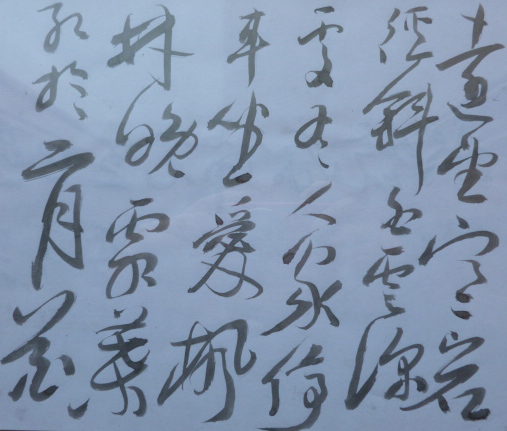 遠上寒山石
徑斜白雲深
處有人家停
車坐愛楓
林晚霜葉
紅於二月花